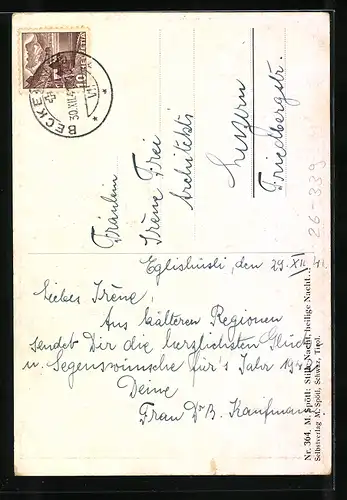 HELVETIA
10
BECKE
30.XII.4
VII
Fräulein
Irène Frei
Architekti
Luzern
Friedbergstr.
26-339
den 29.XII 41.
Liebes Irène,
Aus kälteren Regionen
sendet Dir die herzlichsten Glück
u. Segenswünsche für's Jahr 194
Deine
Frau Dr B. Kaufmann
Nr. 364. M. Spötl: Stille Nacht, heilige Nacht...
Selbstverlag M. Spötl, Schwaz, Tirol.